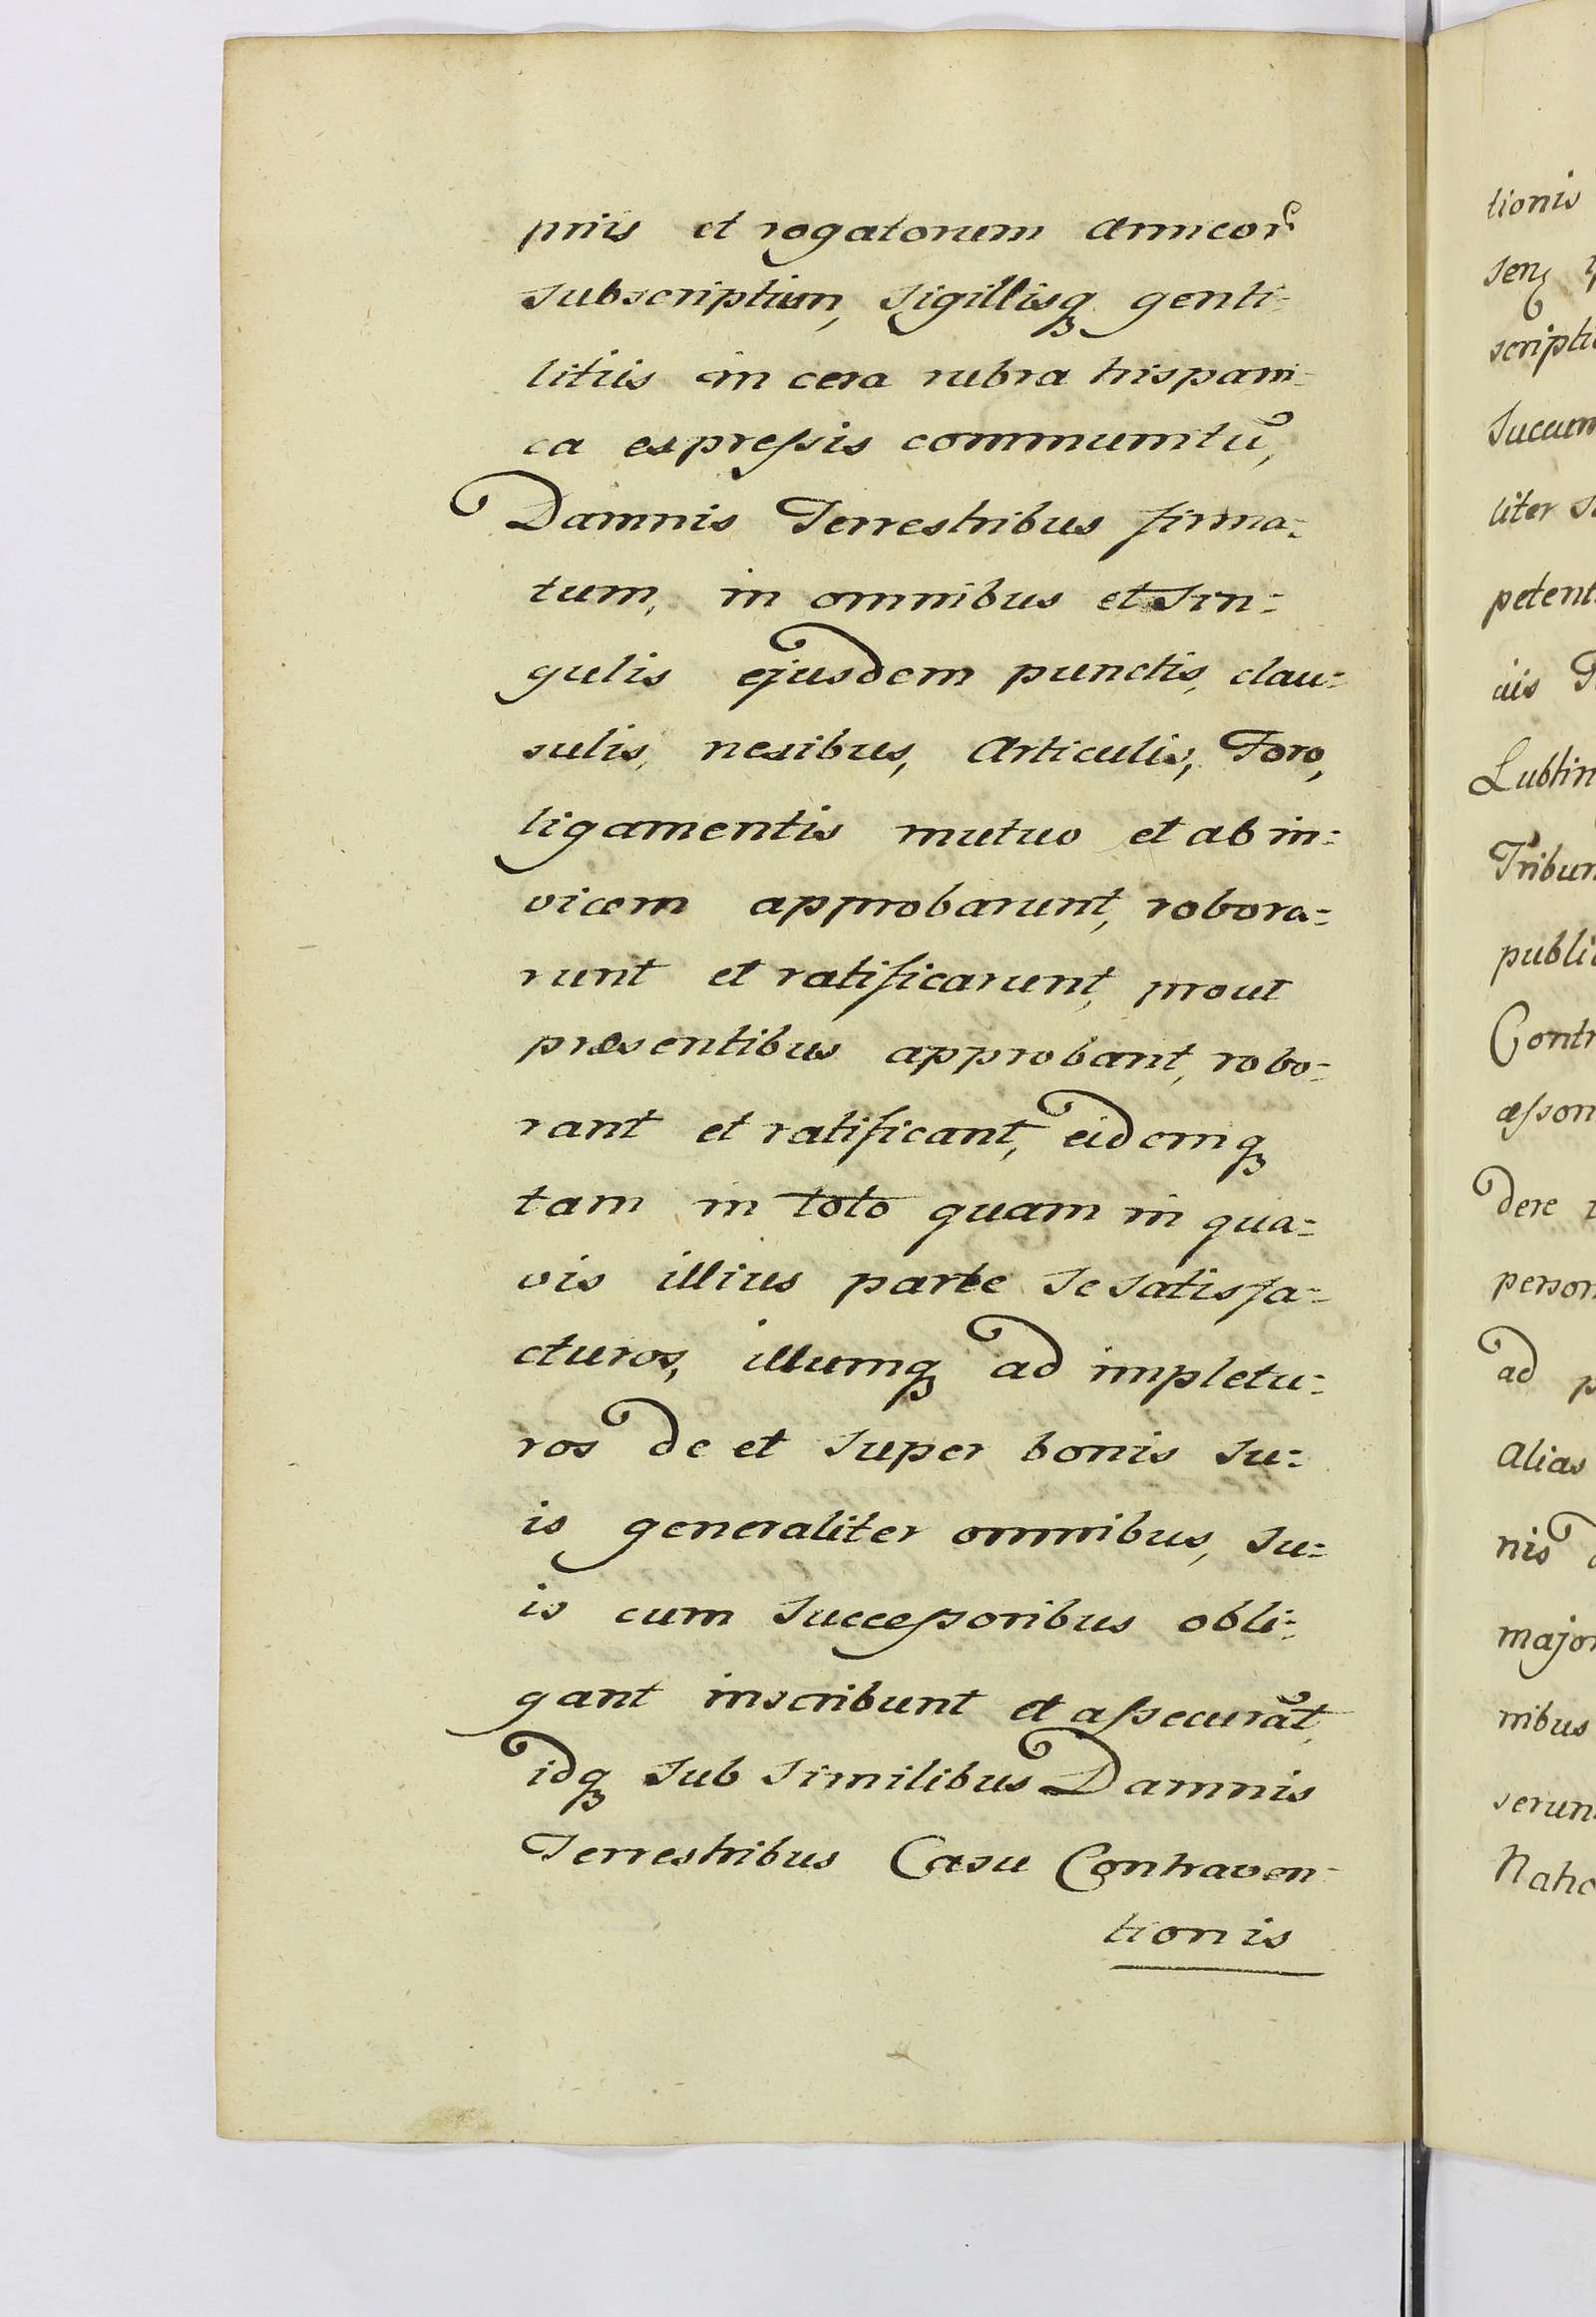 priis et rogatorum Amicor̃
subscriptum, sigillisq genti-
litiis in cera rubra hispani-
ca expreſsis communitũ,
Damnis Terrestribus firma:
tum, in omnibus et sin:
gulis ejusdem punctis, clau:
sulis, nexibus, Articulis, Foro,
ligamentis mutuo et ab in:
vicem approbarunt, robora:
runt et ratificarunt, prout
præsentibus approbant, robo:
rant et ratificant, eidemq
tam in toto quam in qua:
vis illius parte se satisfa:
cturos, illumq ad impletu:
ros de et super bonis su:
is generaliter omnibus, su:
is cum succeſsoribus obli:
gant inscribunt et aſsecurãt,
idq sub similibus Damnis
Terrestribus Casu Contraven-
tionis
tionis
senq
scriptu
succum
liter
petent
ciis
Lublin
Tribun
publi
Contr
aſson
dere
person
ad p
Alias
nis
major
nibus
serun
Natio